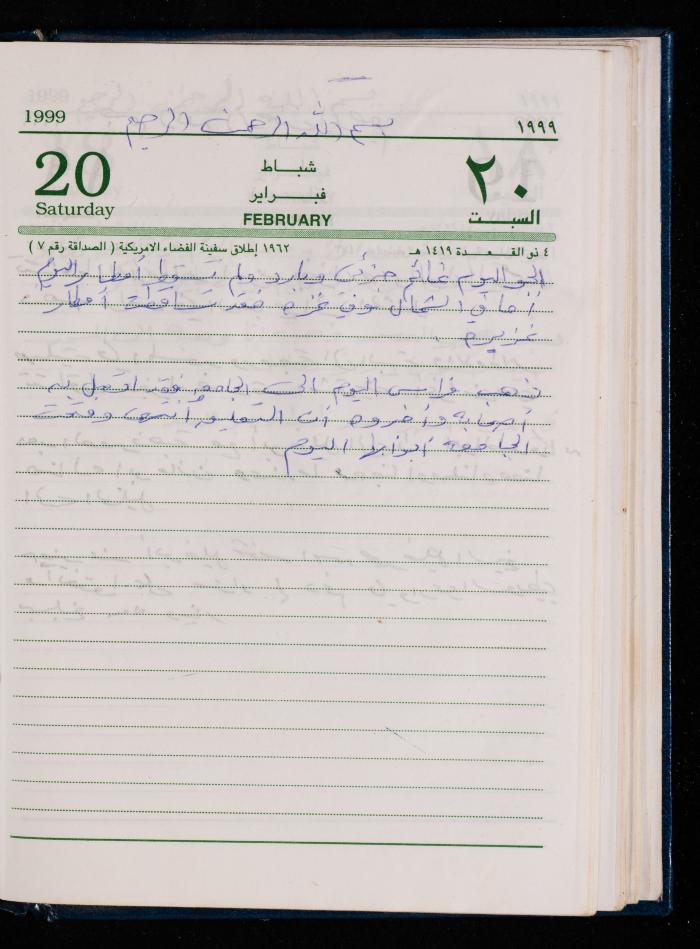 1999
بسم الله الرحمن الرحيم
١٩٩٩
20
Saturday
شباط
فبراير
FEBRUARY
٢٠
السبت
٤ ذو القعدة ١٤١٩ هـ
١٩٦٢ إطلاق سفينة الفضاء الامريكية ( الصداقة رقم ٧ )
الجو اليوم غائم جزئي وبارد ولم تسقط أمطار اليوم
أما في الشمال وفي غزه فقد تساقطت أمطار
غزيره .
ذهب فراس اليوم الى الجامعه فقد اتصل به
أصحابه وأخبروه أن التعليق أنتهى وفتحت
الجامعه أبوابها اليوم